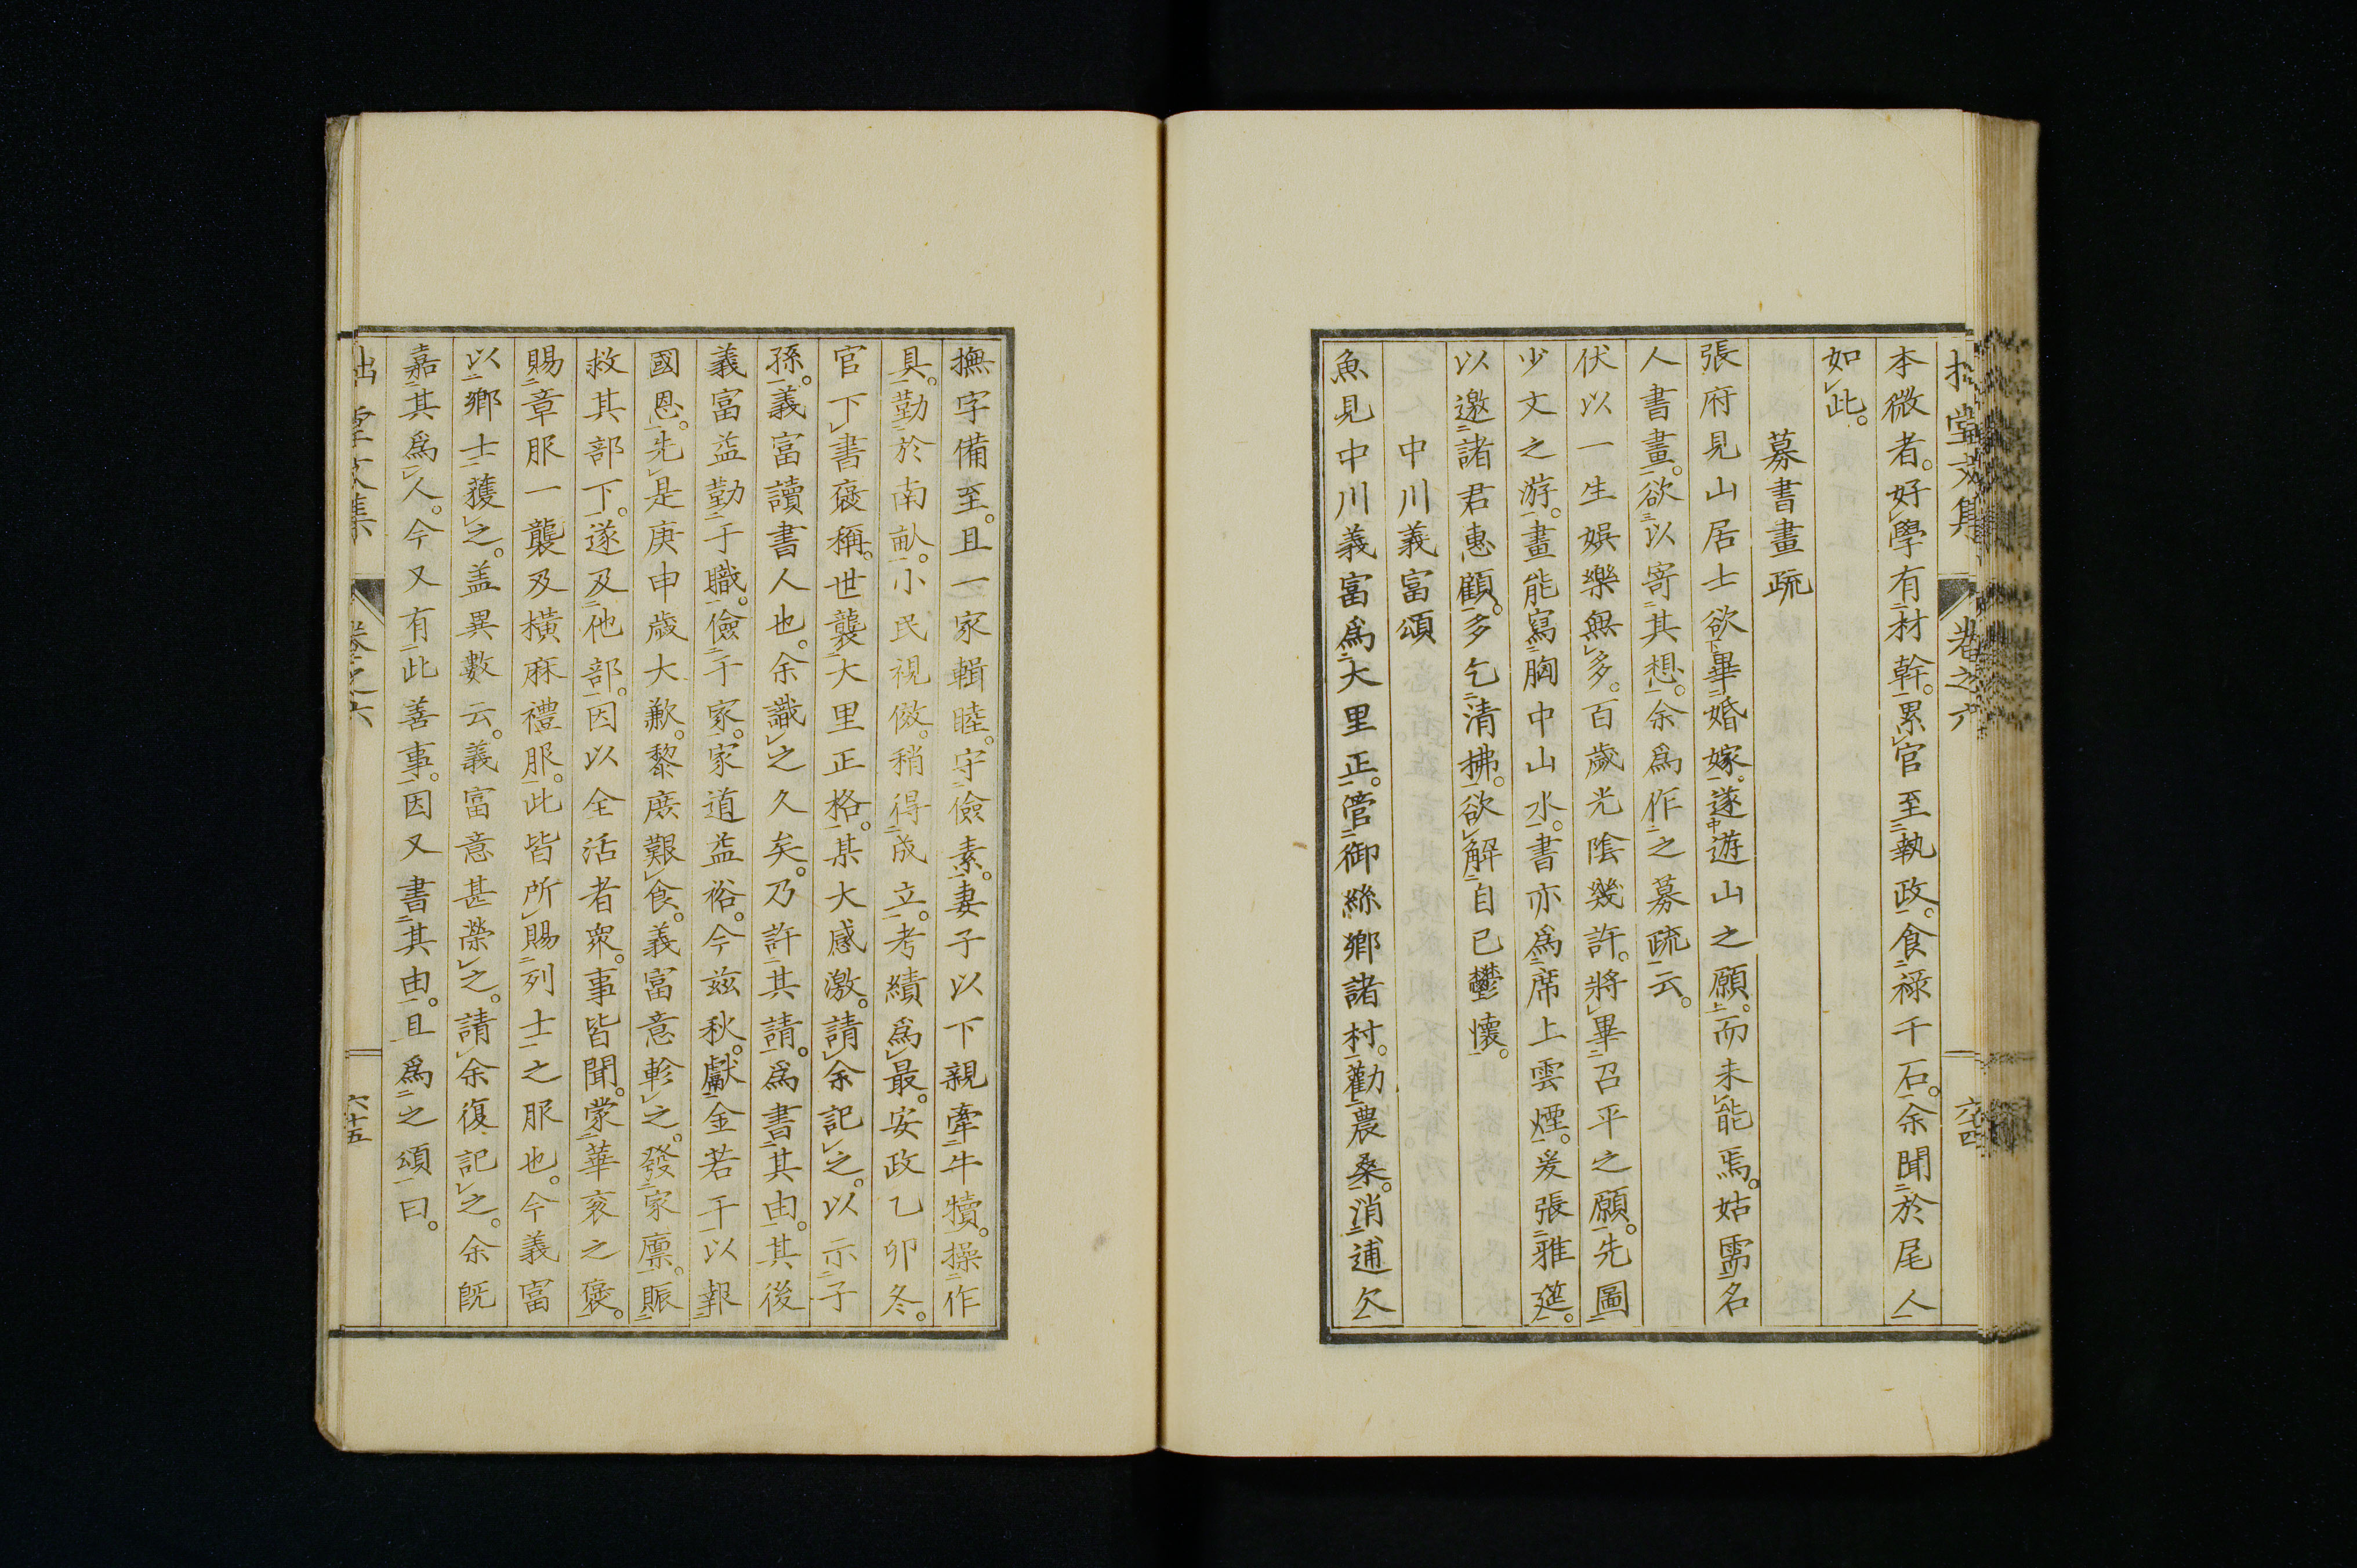 拙堂文集 卷之六 六十四
本微者。好學有材幹。累官至執政。食祿千石。余聞於尾人
如此。
募書畫疏
張府見山居士欲畢婚嫁。遂遊山之願。而未能焉。姑需名
人書畫。欲以寄其想。余爲作之募疏云。
伏以一生娛樂無多。百歲光陰幾許。將畢召平之願。先圖
少文之游。畫能寫胸中山水。書亦爲席上雲煙。爰張雅筵。
以邀諸君惠顧。多乞清拂。欲解自己鬱懷。
中川義富頌
魚見中川義富爲大里正。管御絲鄉諸村。勸農桑。消逋欠
撫字備至。且一家輯睦。守儉素。妻子以下親牽牛犢。操作
具。勤於南畝。小民視傚。稍得成立。考績爲最。安政乙卯冬。
官下書褒稱。世襲大里正格。某大感激。請余記之。以示子
孫。義富讀書人也。余識之久矣。乃許其請。爲書其由。其後
義富益勤于職。儉于家。家道益裕。今茲秋。獻金若干以報
國恩。先是庚申歲大歉。黎庶艱食。義富意軫之。發家廩。賑
救其部下。遂及他部。因以全活者衆。事皆聞。蒙華衮之褒。
賜章服一襲及橫麻禮服。此皆所賜列士之服也。今義富
以鄉士獲之。盖異數云。義富意甚榮之。請余復記之。余旣
嘉其爲人。今又有此善事。因又書其由。且爲之頌曰。
拙堂文集 卷之六 六十五